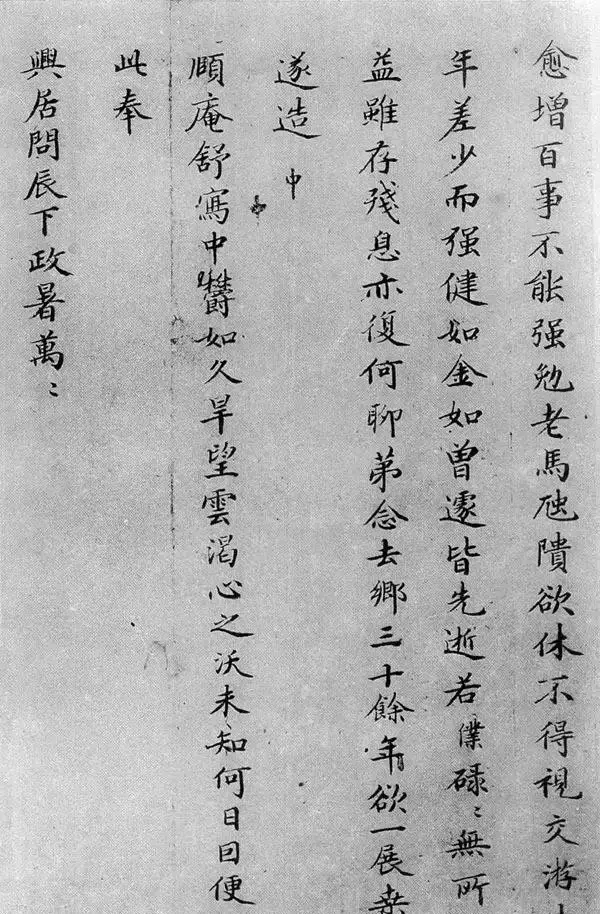 愈增百事不能强勉老馬虺隤欲休不得視交游
年差少而强健如金如曾遽皆先逝若僕碌〻無所
益雖存殘息亦復何聊第念去鄉三十餘年欲一展
遂造
中
頋庵舒寫中欎如久旱望雲渴心之沃未知何日因便
此奉
興居問辰下政暑萬〻